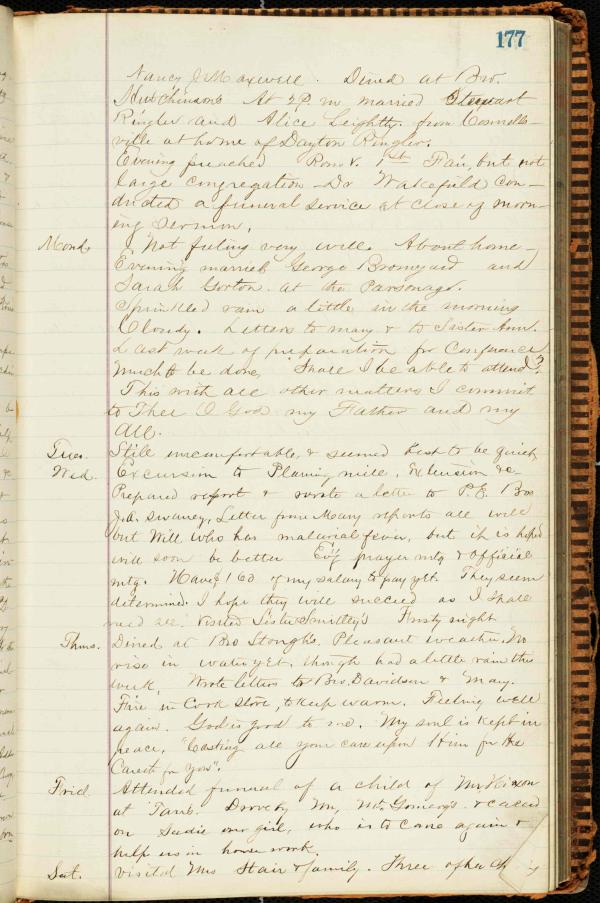 177
Nancy J Maxwell. Dined at Bro.
Hutchinsons At 2 P m married Stewart
Ringler and Alice Leighty. from Connells-
ville at home of Dayton Ringler.
Evening preached Rom V. 1st Fair, but not
large congregation - Dr Wakefield con-
ducted a funeral service at close of morn-
ing sermon.
Mond. Not feeling very well. About home -
Evening married George Bromyard and
Sarah Gorton. at the Parsonage.
Sprinkled rain a little in the morning
Cloudy. Letters to Mary & to Sister Ann.
Last week of preparation for Conference
Much to be done, Shall I be able to attend?
This with all other matters I commit
to Thee O God my Father and my
All.
Tues. Still uncomfortable, & seemed best to be quiet
Wed. Excursion to Planing mill, Extension &c
Prepared report & wrote a letter to P.E. Bro
J.A. Swaney. Letter from Mary reports all well
but Will who has malarial fever, but it is hoped
will soon be better Ev'g prayer mtg & official
mtg. Have $160 of my salary to pay yet. They seem
determined. I hope they will succeed as I shall
need all. Visited Sister Smitley's Frosty night
Thurs. Dined at Bro Stonghs. Pleasant weather. No
rise in water yet, though had a little rain this
week. Wrote letters to Bro. Davidson & Mary.
Fire in Cook Stove, to keep warm. Feeling well
again. God is good to me. My soul is kept in
peace, "Casting all your care upon Him for He
Careth for you".
Frid. Attended funeral of a child of Mr Hixon
at Tarrs. Drove by Mr. Montgomery's & called
on Sadie our girl, who is to come again &
help us in house work
Sat. visited Mrs Stair & family. Three of her